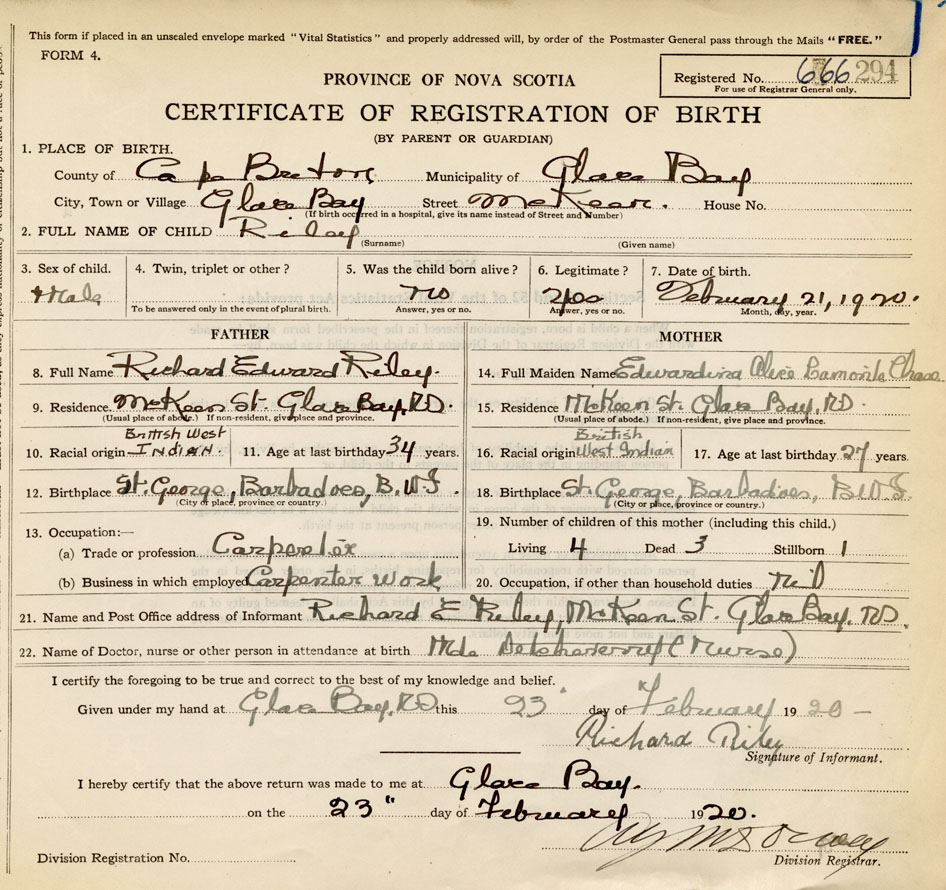 This form if placed in an unsealed envelope marked "Vital Statistics" and properly addressed will, by order of the Postmaster General pass through the Mails "FREE."
FORM 4.
Registered No. 666 294
For use of Registrar General only.
PROVINCE OF NOVA SCOTIA
CERTIFICATE OF REGISTRATION OF BIRTH
(BY PARENT OR GUARDIAN)
1. PLACE OF BIRTH.
County of Cape Breton Municipality of Glace Bay
City, Town or Village Glace Bay Street McKean. House No.
(If birth occurred in a hospital, give its name instead of Street and Number)
2. FULL NAME OF CHILD Riley
(Surname) (Given name)
3. Sex of child. 4. Twin, triplet or other? 5. Was the child born alive? 6. Legitimate? 7. Date of birth.
Male no yes February 21, 1920.
To be answered only in the event of plural birth. Answer, yes or no. Answer, yes or no. Month, day, year.
FATHER MOTHER
8. Full Name Richard Edward Riley. 14. Full Maiden Name Edwardina Alice Chase
9. Residence. McKeen St. Glace Bay, RD. 15. Residence McKeen St. Glace Bay, RD
(Usual place of abode.) If non-resident, give place and province. (Usual place of abode.) If non-resident, give place and province.
British West British
10. Racial origin INDIAN. 11. Age at last birthday 34 years. 16. Racial origin West Indian 17. Age at last birthday 27 years.
12. Birthplace St. George, Barbadoes, B.W.I. 18. Birthplace St. George, Barbadoes, B.W.I.
(City or place, province or country.) (City or place, province or country.)
13. Occupation:— 19. Number of children of this mother (including this child.)
(a) Trade or profession Carpenter Living 4 Dead 3 Stillborn 1
(b) Business in which employed Carpenter Work 20. Occupation, if other than household duties nil
21. Name and Post Office address of Informant Richard E Riley, McKeen St. Glace Bay. RD.
22. Name of Doctor, nurse or other person in attendance at birth (Nurse)
I certify the foregoing to be true and correct to the best of my knowledge and belief.
Given under my hand at Glace Bay, RD this 23 day of February 1920 —
Richard Riley
Signature of Informant.
I hereby certify that the above return was made to me at Glace Bay.
on the 23" day of February 1920.
Division Registration No. Division Registrar.